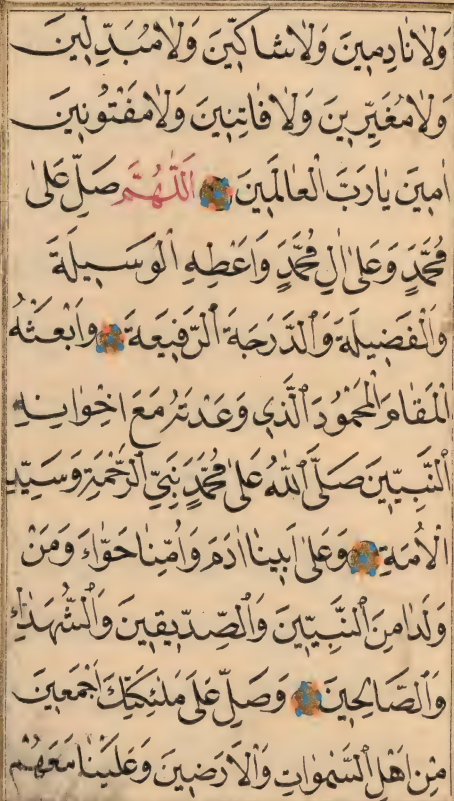 وَلَا نَادِمِينَ وَلَا شَاكِّينَ وَلَا مُبَدِّلِينَ
وَلَا مُغَيِّرِينَ وَلَا فَاتِنِينَ وَلَا مَفْتُونِينَ
اٰمِينَ يَارَبَّ الْعَالَمِينَ اَللّٰهُمَّ صَلِّ عَلٰى
مُحَمَّدٍ وَعَلٰى اٰلِ مُحَمَّدٍ وَاَعْطِهِ الْوَسِيلَةَ
وَالْفَضِيلَةَ وَالدَّرَجَةَ الرَّفِيعَةَ وَابْعَثْهُ
الْمَقَامَ الْمَحْمُودَ الَّذِي وَعَدْتَهُ مَعَ اِخْوَانِهِ
النَّبِيِّينَ صَلَّى اللّٰهُ عَلٰى مُحَمَّدٍ نَبِيِّ الرَّحْمَةِ وَسَيِّدِ
الْاُمَّةِ وَعَلٰى اَبِينَا اٰدَمَ وَاُمِّنَا حَوَّاءَ وَمَنْ
وَلَدَا مِنَ النَّبِيِّينَ وَالصِّدِّيقِينَ وَالشُّهَدَاءِ
وَالصَّالِحِينَ وَصَلِّ عَلٰى مَلٰئِكَتِكَ اَجْمَعِينَ
مِنْ اَهْلِ السَّمٰوَاتِ وَالْاَرَضِينَ وَعَلَيْنَا مَعَهُمْ